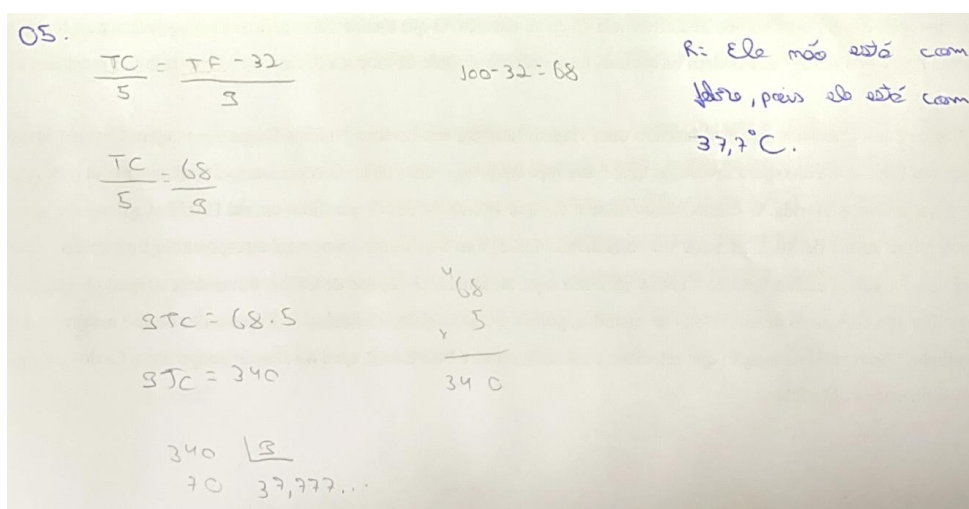 05.
TC/5 = TF - 32/9
100-32=68
R: Ele não está com
febre, pois ele está com
37,7°C.
TC/5 = 68/9
9TC = 68.5
9TC = 340
4
68
x 5
340
340 | 9
70 37,777...